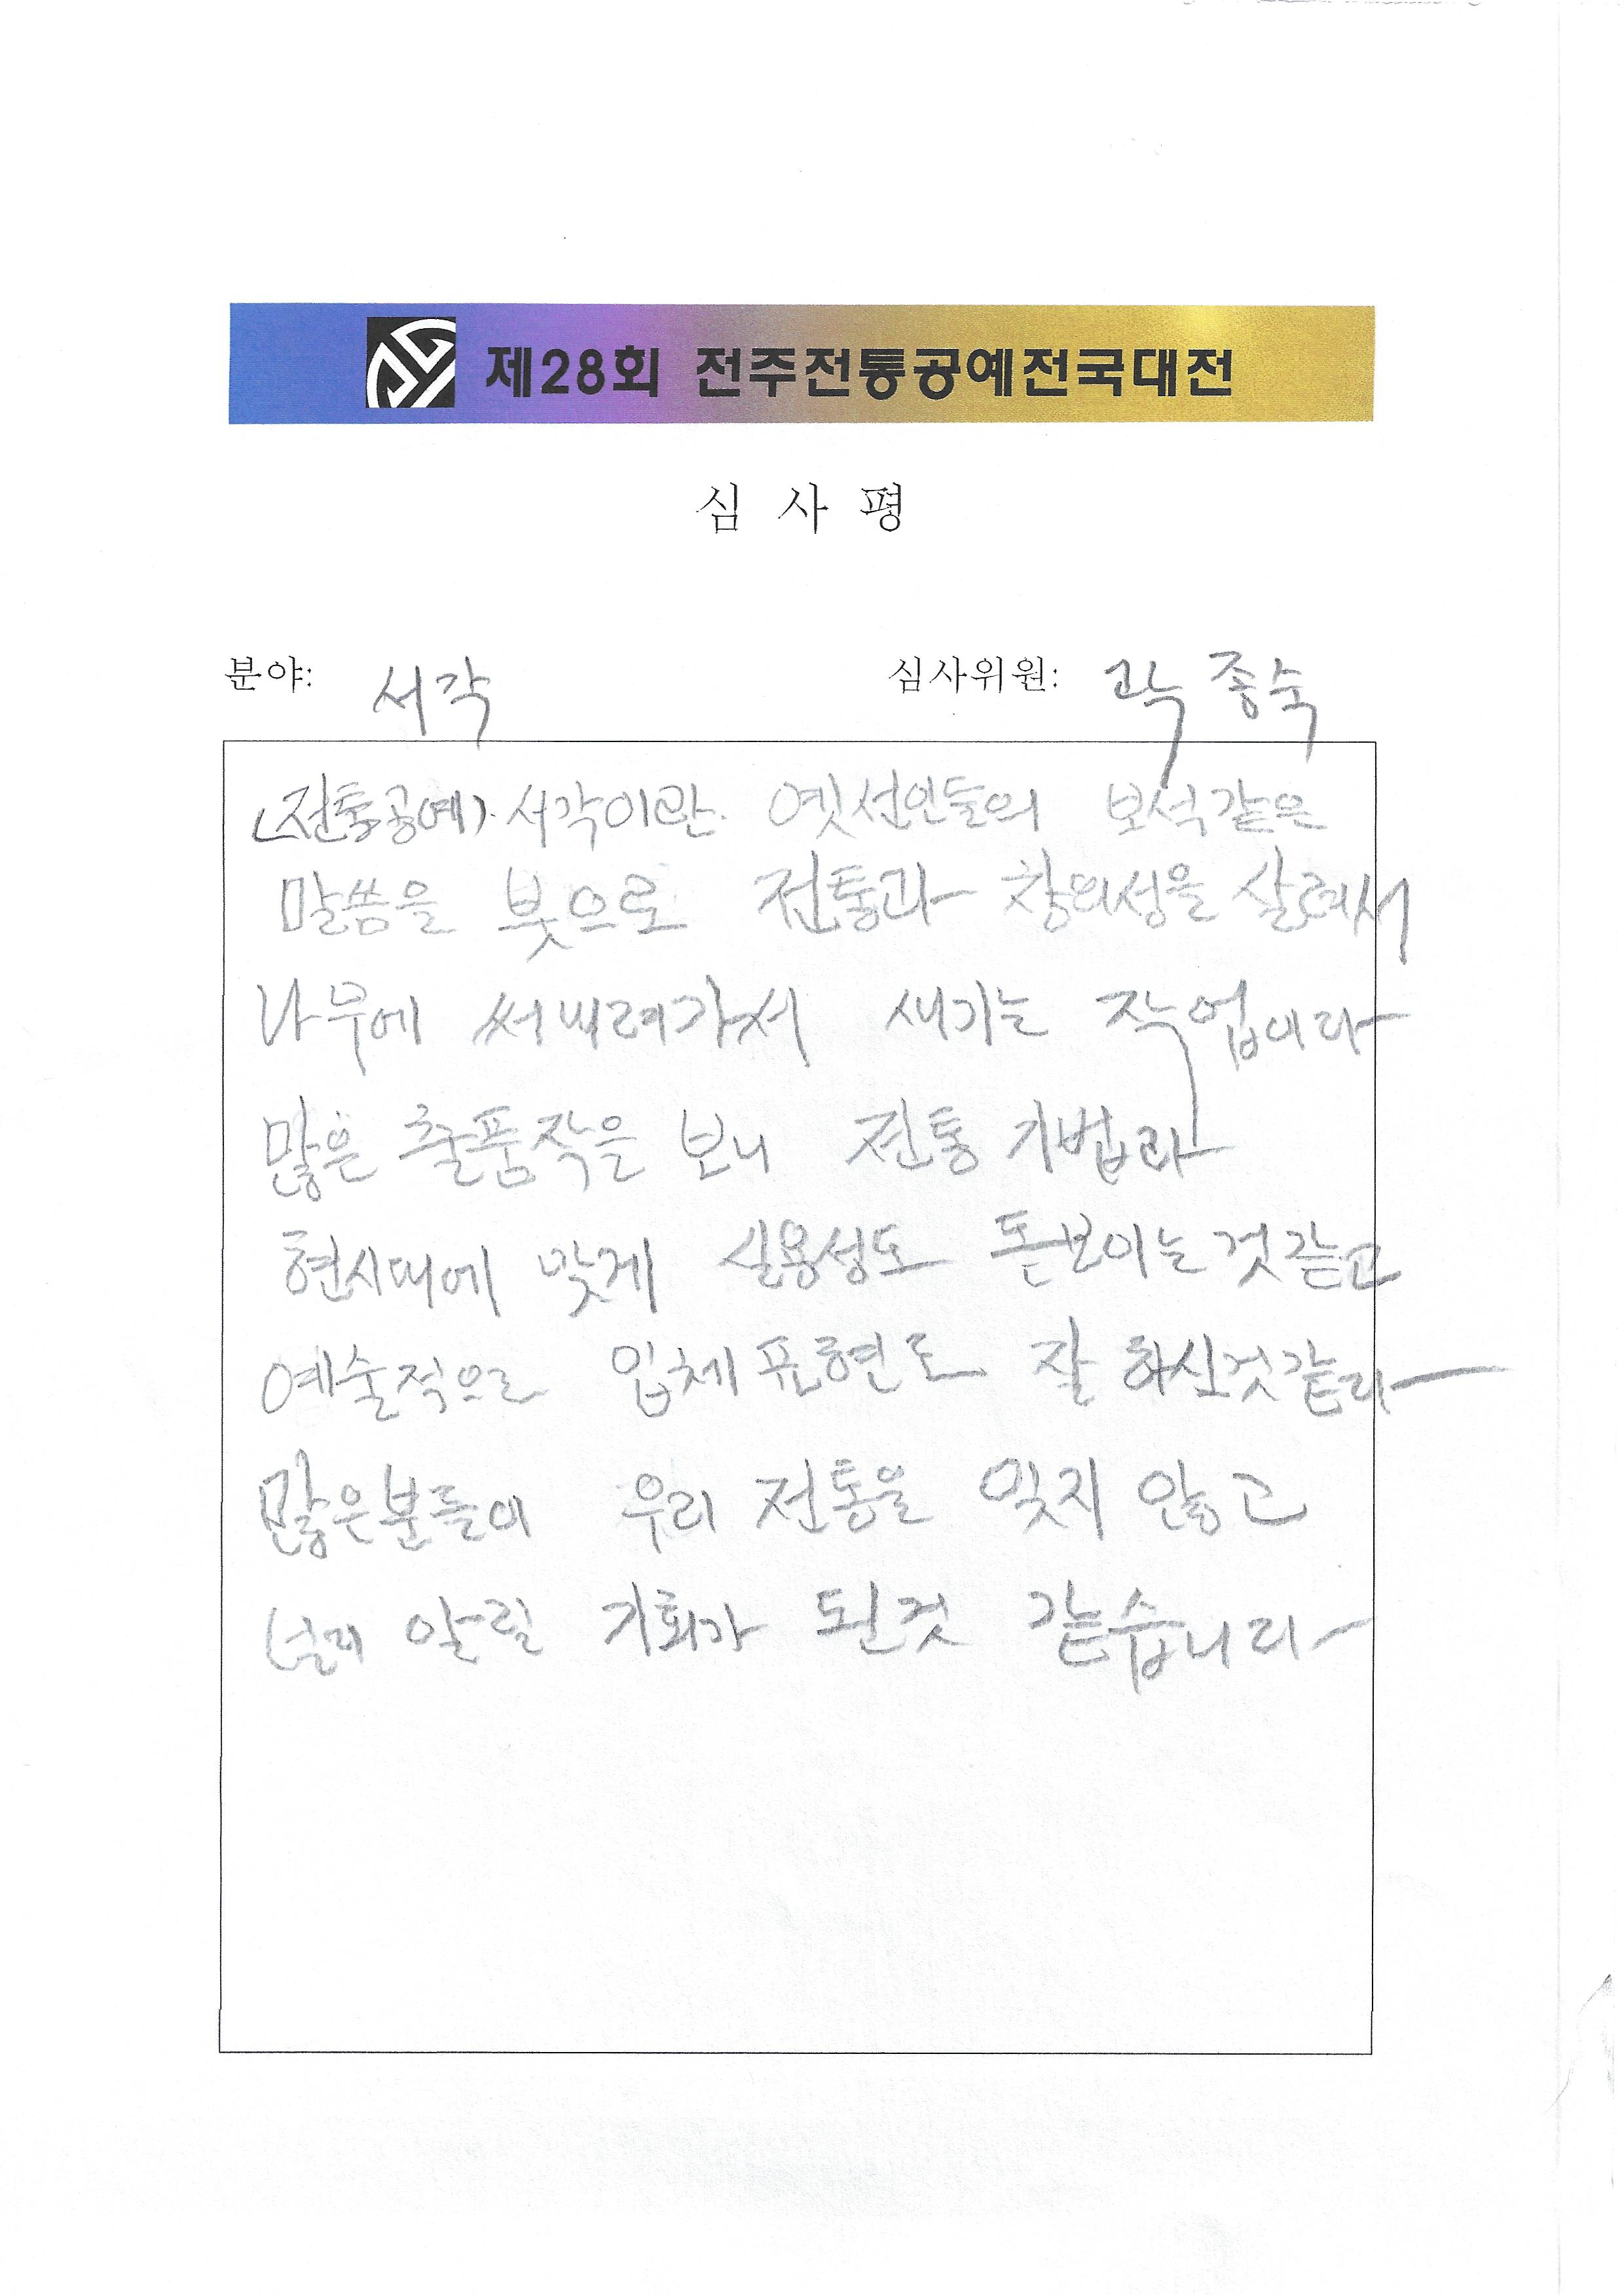 제28회 전주전통공예전국대전
심 사 평
분야: 서각 심사위원: 곽종숙
(전통공예) 서각이란 옛선인들의 보석같은
말씀을 붓으로 전통과 창의성을 살려서
나무에 써내려가서 새기는 작업이라
많은 출품작을 보니 전통 기법과
현시대에 맞게 실용성도 돋보이는것같고
예술적으로 입체표현도 잘 하신것같다
많은분들이 우리 전통을 잊지 않고
널리 알릴 기회가 된것 같습니다